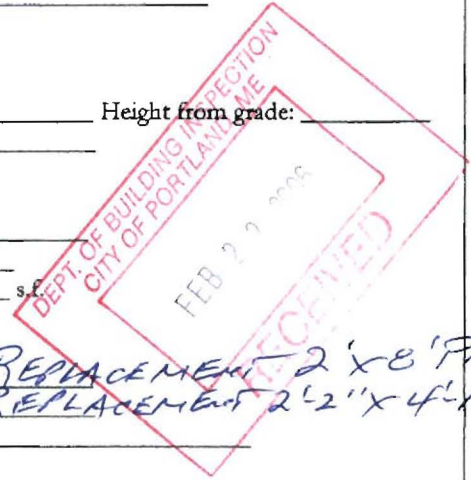 Height from grade:
DEPT. OF BUILDING INSPECTION
CITY OF PORTLAND, ME
s.f.
FEB 2
RECEIVED
REPLACEMENT 2'X8'
REPLACEMENT 2'-2"X4'-